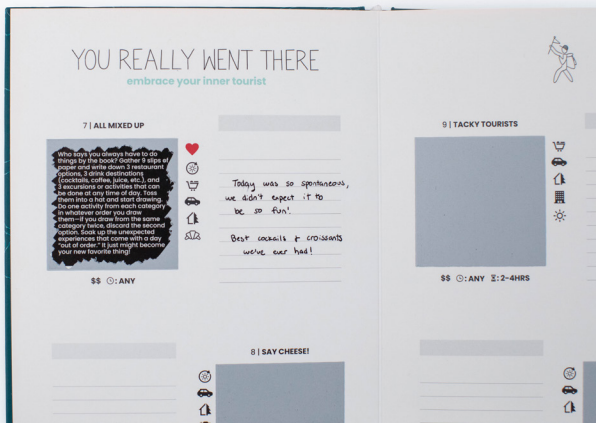 YOU REALLY WENT THERE
embrace your inner tourist
7 | ALL MIXED UP
Who says you always have to do
things by the book? Gather 9 slips of
paper and write down 3 restaurant
options, 3 drink destinations
(cocktails, coffee, juice, etc.), and
3 excursions or activities that can
be done at any time of day. Toss
them into a hat and start drawing.
Do one activity from each category
in whatever order you draw
them—if you draw from the same
category twice, discard the second
option. Soak up the unexpected
experiences that come with a day
"out of order." It just might become
your new favorite thing!
$$ :ANY
Today was so spontaneous,
we didn't expect it to
be so fun!
Best cocktails & croissants
we've ever had!
8 | SAY CHEESE!
9 | TACKY TOURISTS
$$ :ANY :2-4HRS